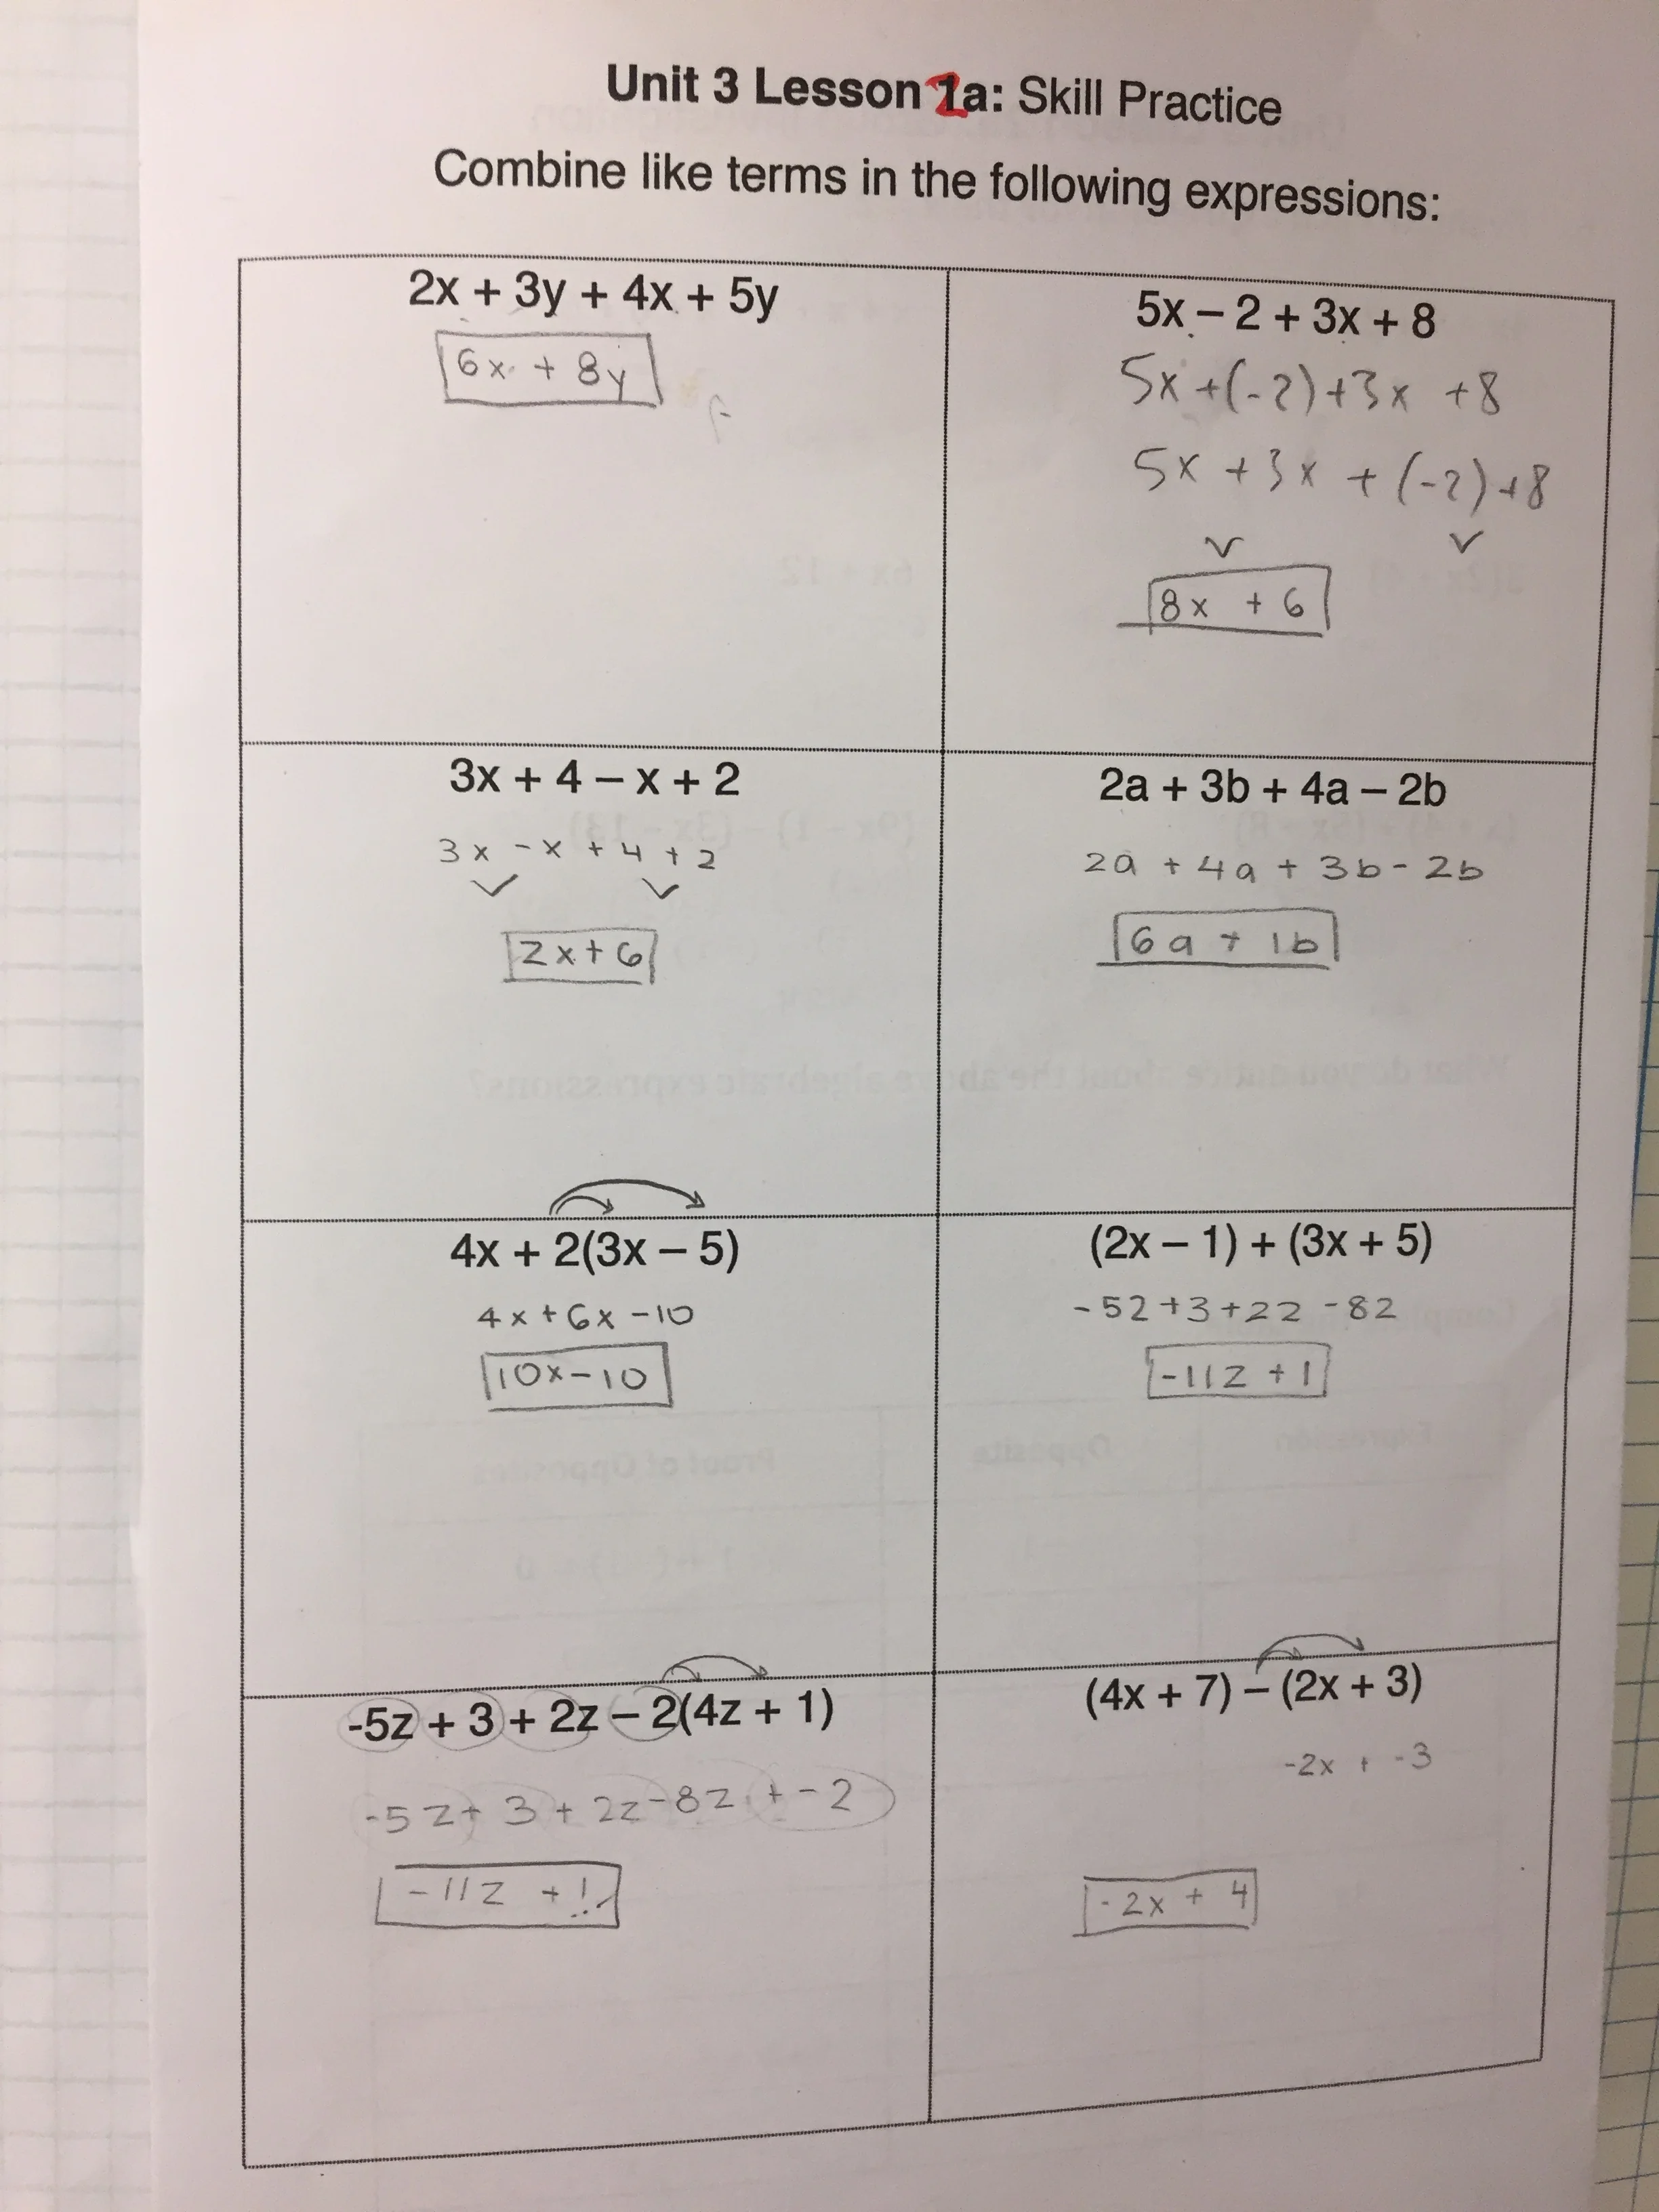 Unit 3 Lesson 1a: Skill Practice
Combine like terms in the following expressions:
2x + 3y + 4x + 5y
6x + 8y
5x – 2 + 3x + 8
5x +(-2)+3x +8
5x +3x + (-2)+8
8x + 6
3x + 4 – x + 2
3x -x + 4 + 2
2x+6
2a + 3b + 4a – 2b
2a + 4a + 3b - 2b
6a + 1b
4x + 2(3x – 5)
4x+6x -10
10x-10
(2x – 1) + (3x + 5)
-5z+3+2z -8z
-11z + 1
-5z + 3 + 2z – 2(4z + 1)
-5z+ 3 + 2z -8z + -2
-11z + 1
(4x + 7) – (2x + 3)
-2x + -3
-2x + 4